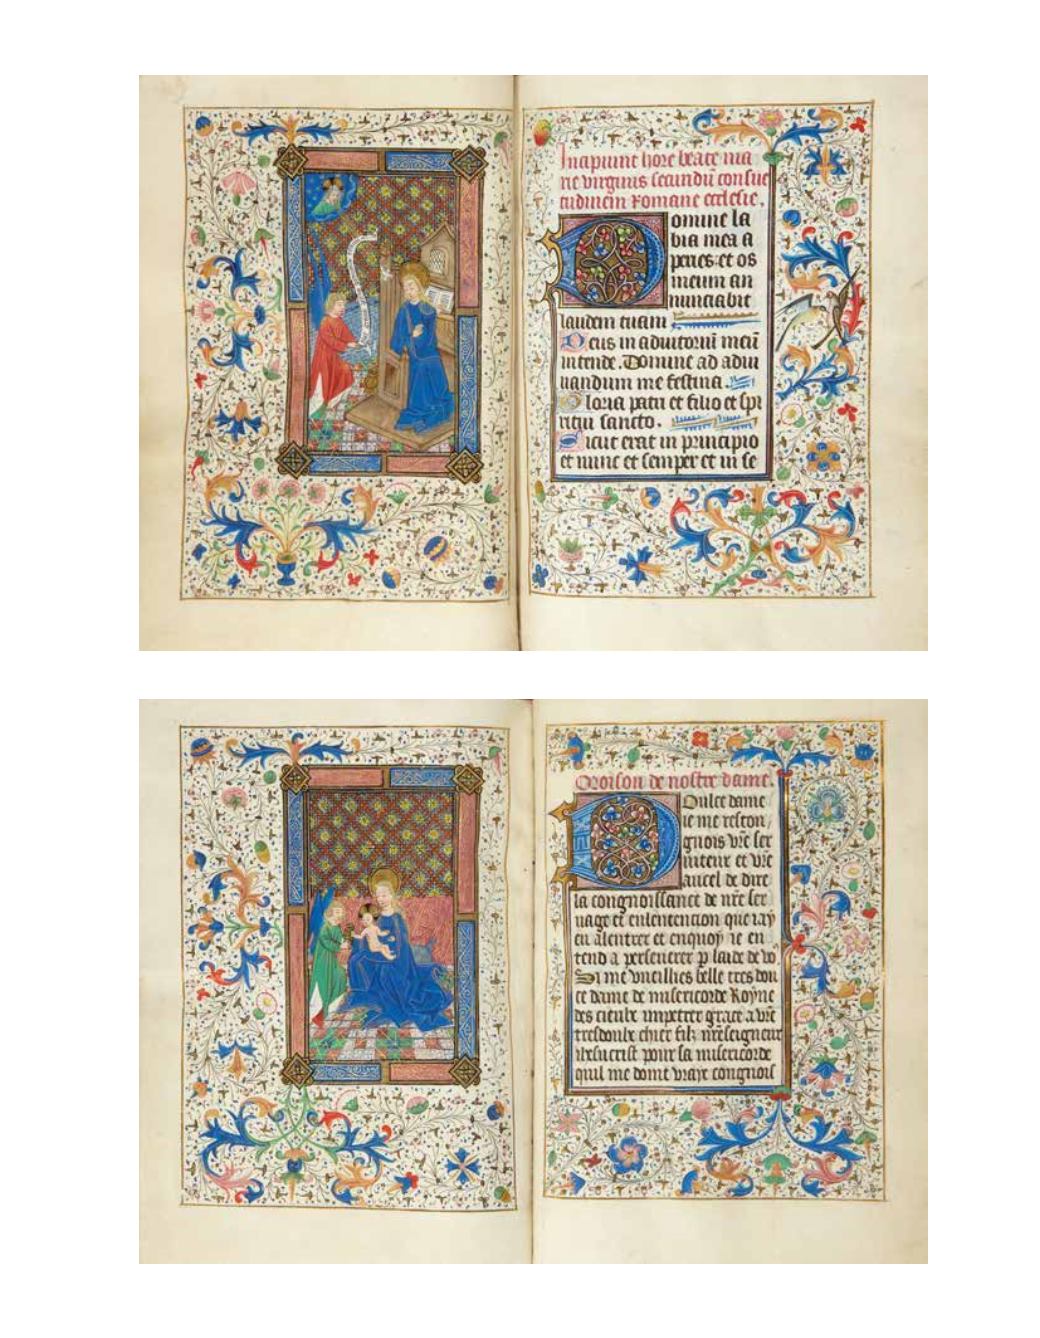 Incipiunt hore beate ma
rie virginis secundū consue
tudinem Romane ecclesie.
Domine la
bia mea a
peries: et os
meum an
nunciabit
laudem tuam
Deus in adiutoriū meū
intende. Domine ad adiu
uandum me festina.
Gloria patri et filio et spi
ritui sancto.
Sicut erat in principio
et nunc et semper et in se
Oroison de nostre dame
Doulce dame
ie me recon
gnois vr̄e ser
uiteur et vr̄e
ancel de dire
la congnoissance de nr̄e ser
uage et en lentencion que iay
eu a lentrer et en quoy ie en
tend a perseuerer p laide de vo
Si me vueillies belle tres dou
ce dame de misericorde Royne
des cieulx impetrer grace a vr̄e
tresdoulx chier filz nr̄e seigneur
ihesucrist pour sa misericorde
quil me doint vraye congnois